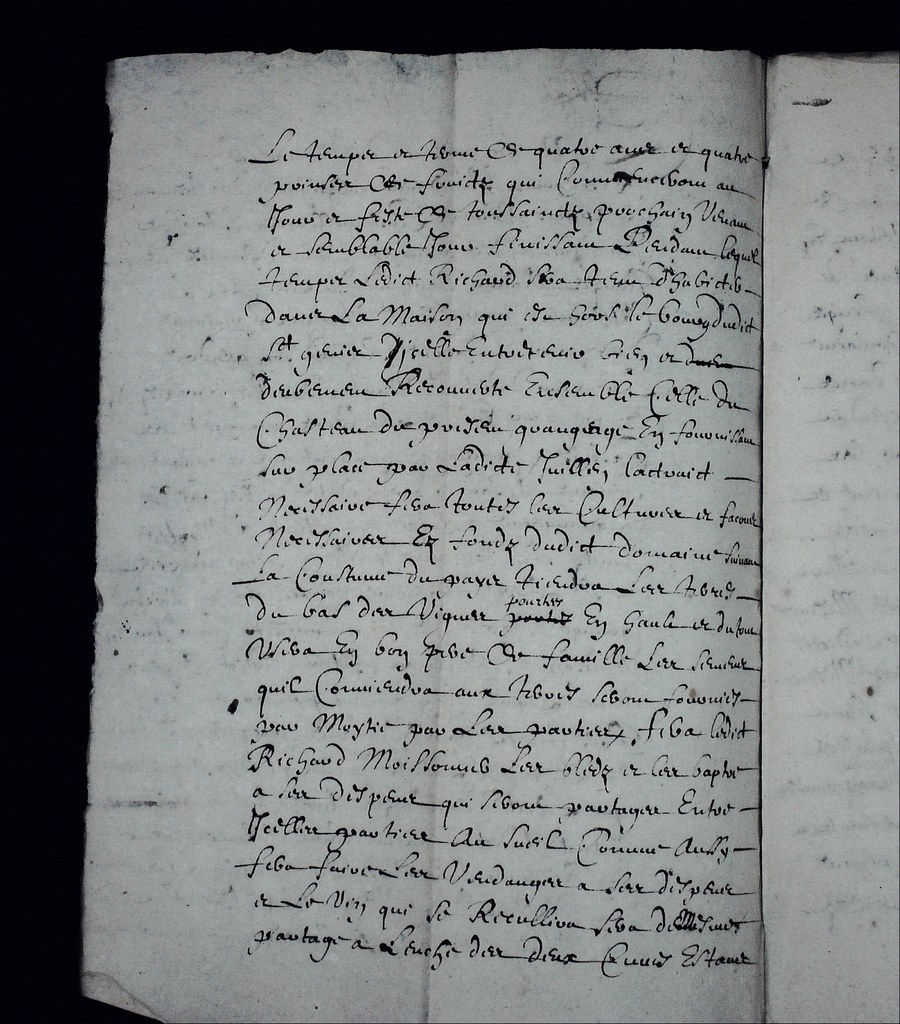 Le temps et terme de quatre ans et quatre
prinses de fruictz qui Commenceront au
Jour et feste de toussainctz prochain Venant
et semblable Jour finissant Pendant lequel
temps Ledict Richard sera tenu d'habiter
dans La Maison qui est hors le bourg dudict
St genies Jcelle Entretenir bien et
deubement Recouverte Ensemble Celle du
Chasteau de En fournissant
sur place par Ladicte Juillien
Necessaire fera toutes les Cultures et facons
Necessaires Es fondz dudict domaine suivant
La Coustume du pays tiendra Les terres
du bas des Vignes En hault et du tout
Usera En bon pere de famille Les semens
quil Conviendra aux terres seront fournies
par Moytie par Les parties, fera ledict
Richard Moissonner Les bledz et les baptre
a ses despens qui seront partages Entre
Jcelles parties Au sueil Comme Aussy
fera faire Les Vendanges a ses despens
et Le Vin qui se Recullira sera de Mesmes
partage a Lanche des deux Cuves Estans